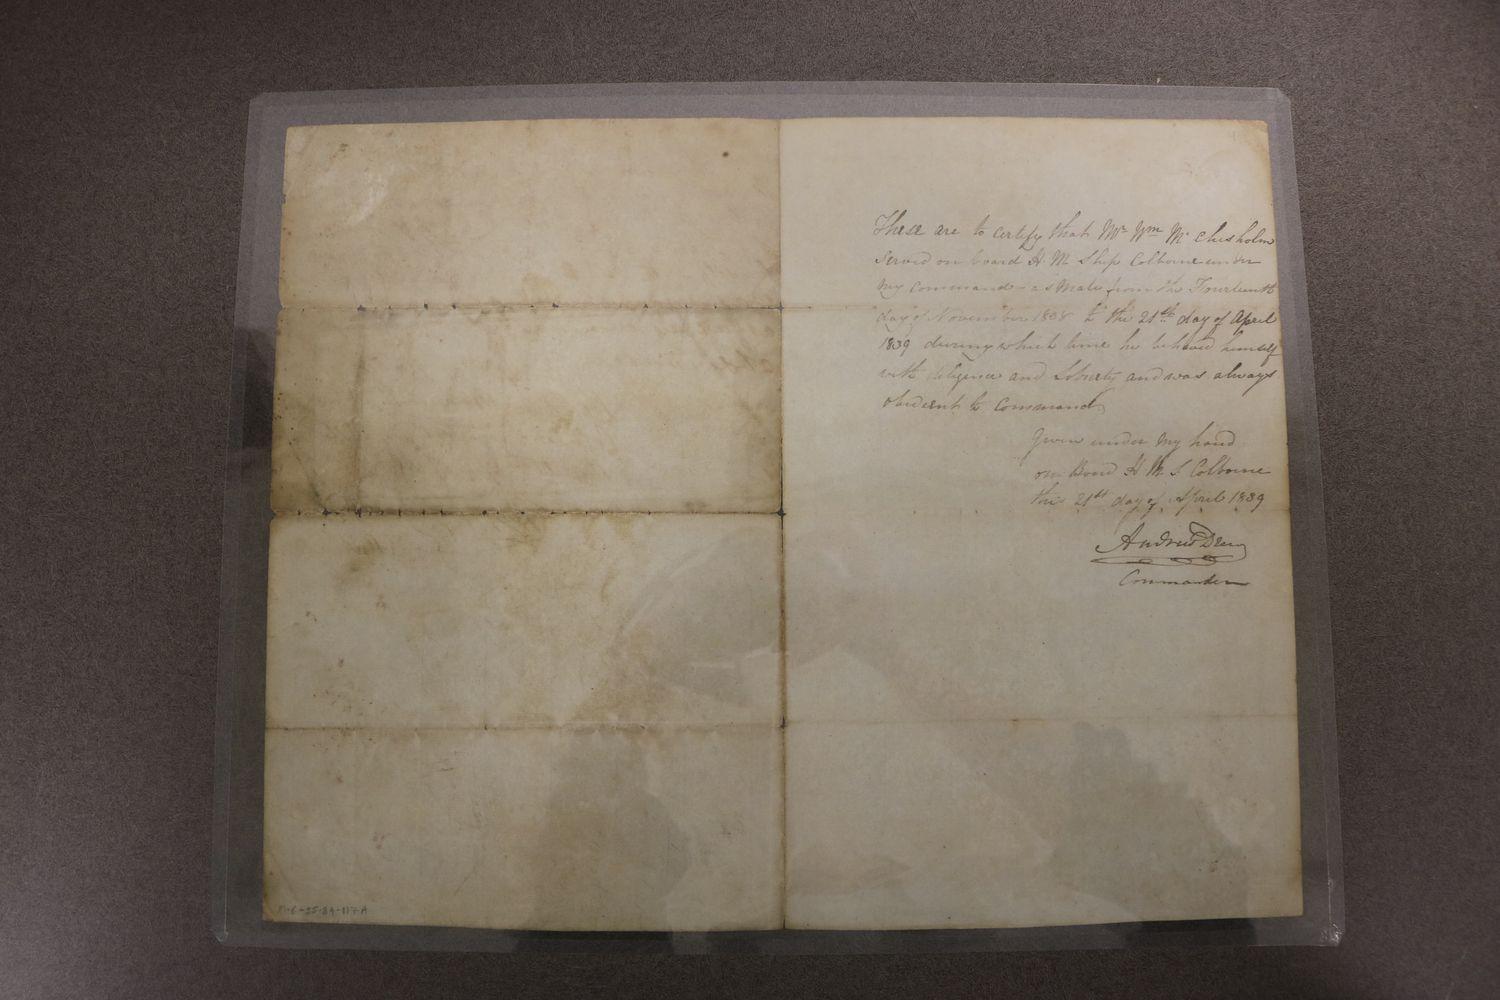 These are to certify that Mr Wm Mc Chisholm
Served on board H. M. Ship Colborne under
my command as Mate from the Fourteenth
day of November 1838 to the 21st day of April
1839 during which time he behaved himself
with diligence and Sobriety and was always
obedient to command
Given under my hand
on Board H M S Colborne
this 21st day of April 1839
Andrew Drew
Commander